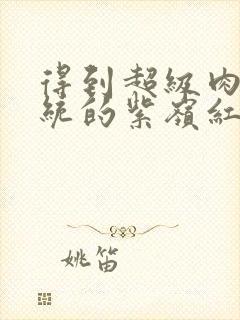 得到超級肉
統的紫嶺紅
姚笛